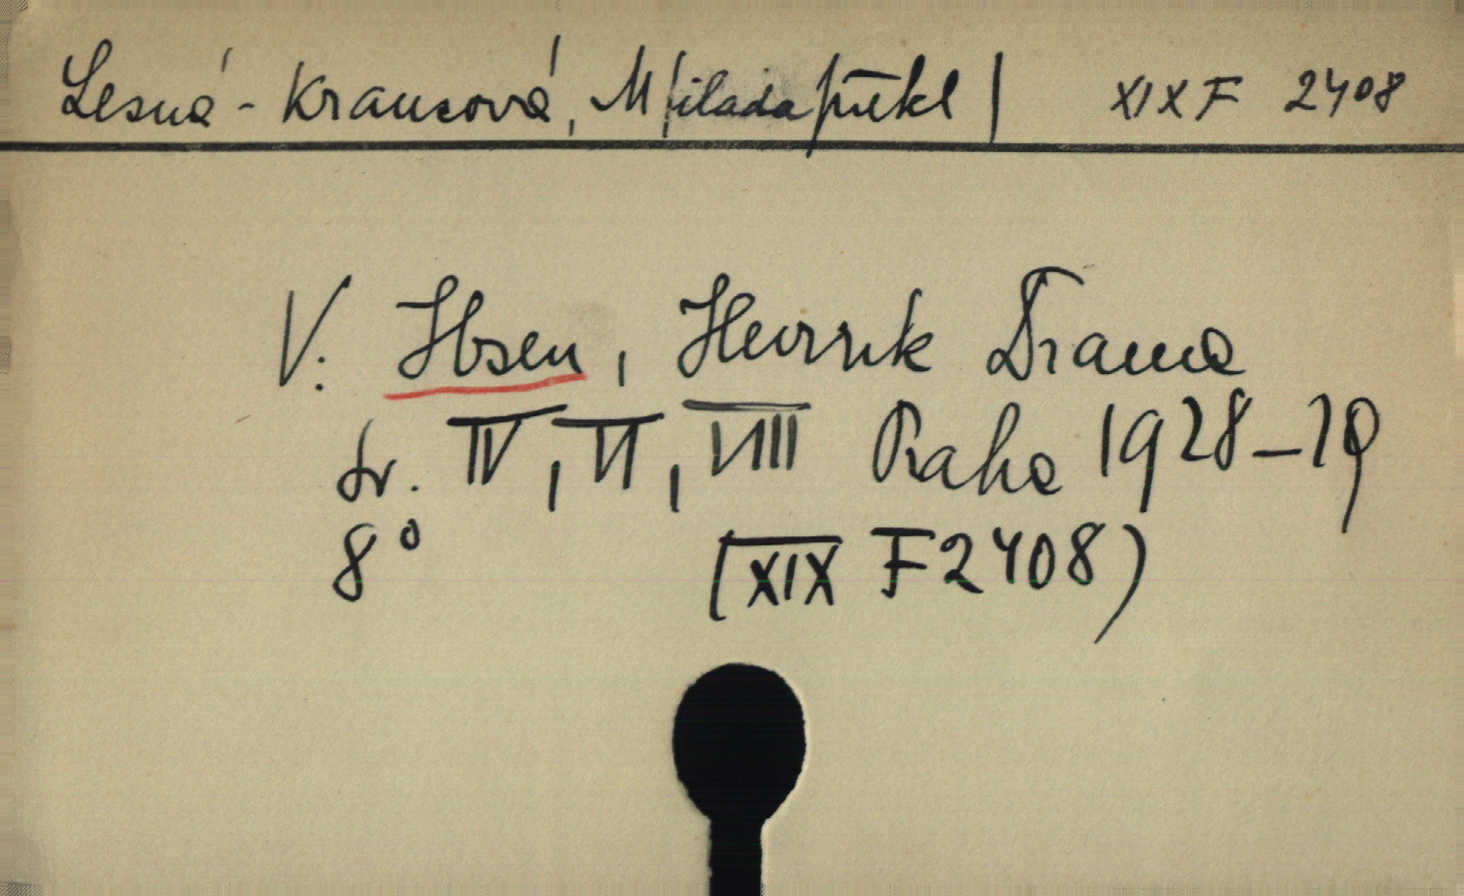 Lesná - Krausová, M/ilada překl/ XIX F 2408
V. Ibsen, Henrik Drama
sv. IV, VI, VIII Praha 1928-29
8° (XIX F 2408)